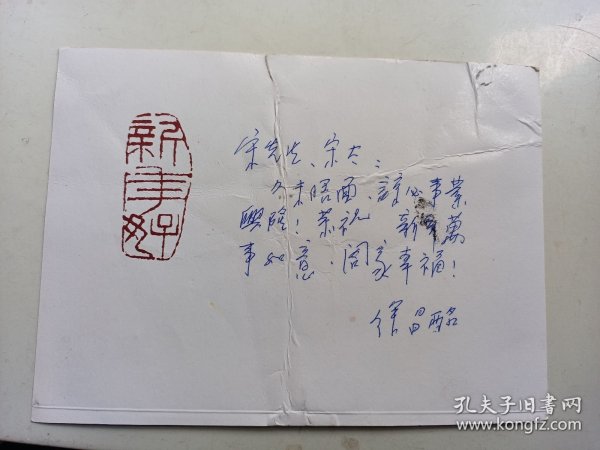 新年好
宋先生、宋太：
久未晤面，諒必事業
興隆！恭祝 新年萬
事如意，阖家幸福！
徐昌酩
孔夫子旧书网
www.kongfz.com